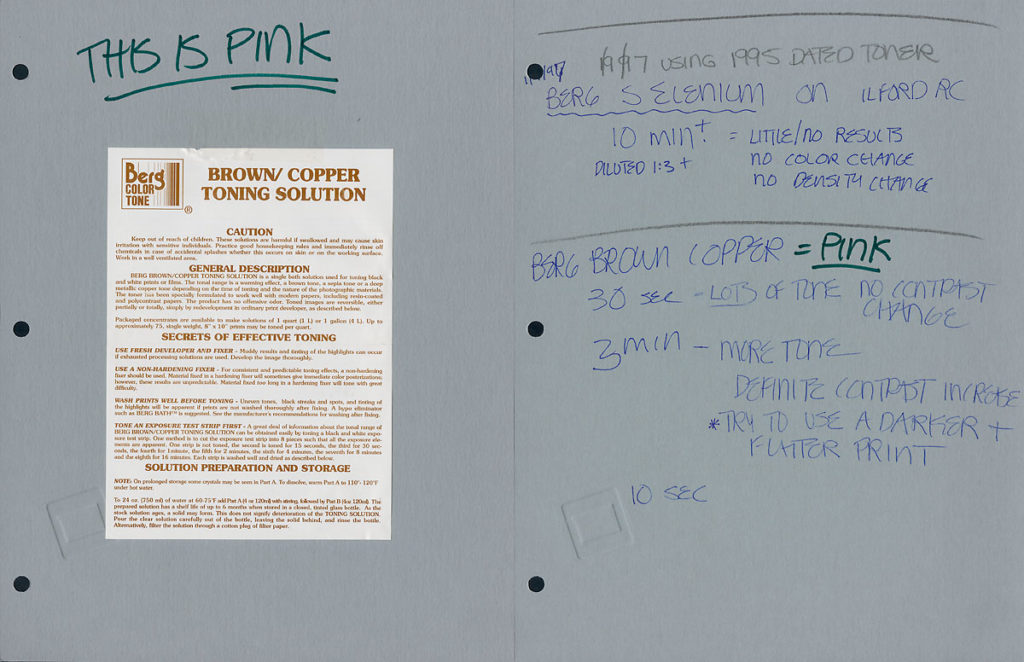 THIS IS PINK
Berg
COLOR
TONE
®
BROWN/ COPPER
TONING SOLUTION
CAUTION
Keep out of reach of children. These solutions are harmful if swallowed and may cause skin
irritation with sensitive individuals. Practice good housekeeping rules and immediately rinse off
chemicals in case of accidental splashes whether this occurs on skin or on the working surface.
Work in a well ventilated area.
GENERAL DESCRIPTION
BERG BROWN/COPPER TONING SOLUTION is a single bath solution used for toning black
and white prints or films. The tonal range is a warming effect, a brown tone, a sepia tone or a deep
metallic copper tone depending on the time of toning and the nature of the photographic materials.
The toner has been specially formulated to work well with modern papers, including resin-coated
and polycontrast papers. The product has no offensive odor. Toned images are reversible, either
partially or totally, simply by redevelopment in ordinary print developer, as described below.
Packaged concentrates are available to make solutions of 1 quart (1 L) or 1 gallon (4 L). Up to
approximately 75, single weight, 8" x 10" prints may be toned per quart.
SECRETS OF EFFECTIVE TONING
USE FRESH DEVELOPER AND FIXER - Muddy results and tinting of the highlights can occur
if exhausted processing solutions are used. Develop the image thoroughly.
USE A NON-HARDENING FIXER - For consistent and predictable toning effects, a non-hardening
fixer should be used. Material fixed in a hardening fixer will sometimes give immediate color posterizations;
however, these results are unpredictable. Material fixed too long in a hardening fixer will tone with great
difficulty.
WASH PRINTS WELL BEFORE TONING - Uneven tones, black streaks and spots, and tinting of
the highlights will be apparent if prints are not washed thoroughly after fixing. A hypo eliminator
such as BERG BATH™ is suggested. See the manufacturer's recommendations for washing after fixing.
TONE AN EXPOSURE TEST STRIP FIRST - A great deal of information about the tonal range of
BERG BROWN/COPPER TONING SOLUTION can be obtained easily by toning a black and white expo-
sure test strip. One method is to cut the exposure test strip into 8 pieces such that all the exposure ele-
ments are apparent. One strip is not toned, the second is toned for 15 seconds, the third for 30 sec-
onds, the fourth for 1minute, the fifth for 2 minutes, the sixth for 4 minutes, the seventh for 8 minutes
and the eighth for 16 minutes. Each strip is washed well and dried as described below.
SOLUTION PREPARATION AND STORAGE
NOTE: On prolonged storage some crystals may be seen in Part A. To dissolve, warm Part A to 110°- 120°F
under hot water.
To 24 oz. (750 ml) of water at 60-75°F add Part A (4 oz 120ml) with stirring, followed by Part B (4oz 120ml). The
prepared solution has a shelf life of up to 6 months when stored in a closed, tinted glass bottle. As the
stock solution ages, a solid may form. This does not signify deterioration of the TONING SOLUTION.
Pour the clear solution carefully out of the bottle, leaving the solid behind, and rinse the bottle.
Alternatively, filter the solution through a cotton plug of filter paper.
USING 1995 DATED TONER
BERG SELENIUM ON ILFORD RC
10 MIN+ = LITTLE/NO RESULTS
DILUTED 1:3 + NO COLOR CHANGE
NO DENSITY CHANGE
BERG BROWN COPPER = PINK
30 SEC - LOTS OF TONE NO CONTRAST
CHANGE
3 MIN - MORE TONE
DEFINITE CONTRAST INCREASE
*TRY TO USE A DARKER +
FLATTER PRINT
10 SEC